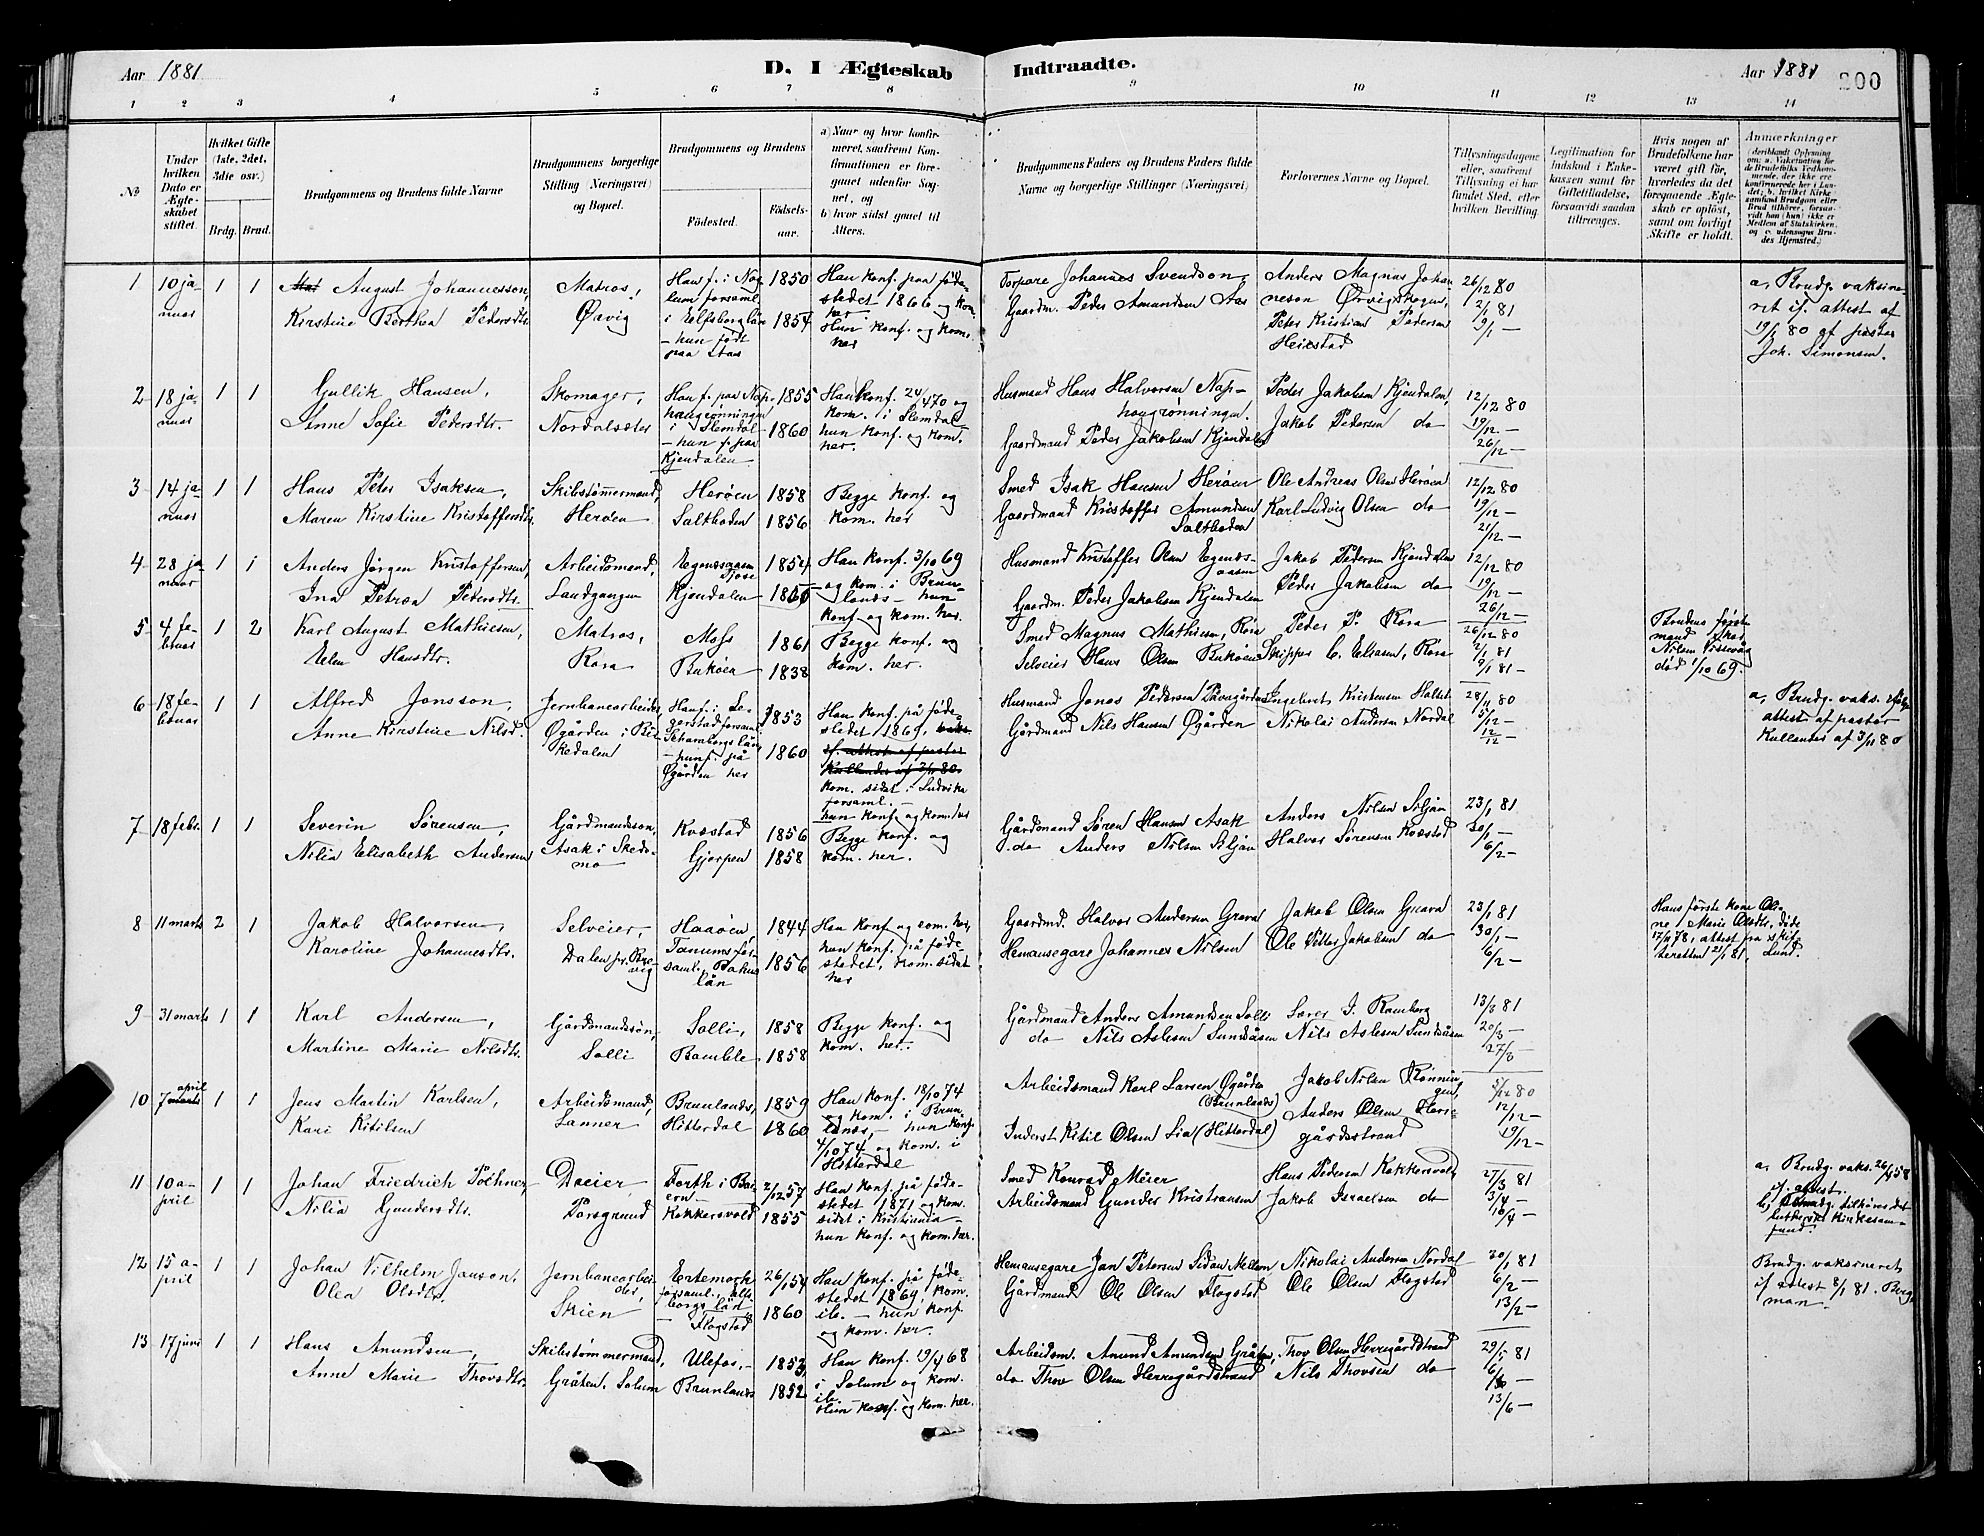 Aar 1881
D. I Ægteskab Indtraadte.
Aar 1881
200
1 2 3 4 5 6 7 8 9 10 11 12 13 14
№
Under hvilken Dato er Ægteskabet stiftet.
Hvilket Gifte (1ste, 2det, 3die osv.)
Brdg. Brud.
Brudgommens og Brudens fulde Navne
Brudgommens borgerlige Stilling (Næringsvei) og Bopæl.
Brudgommens og Brudens
Fødested.
Fødselsaar.
a) Naar og hvor konfirmeret, saafremt Konfirmationen er foregaaet udenfor Sognet, og
b) hvor sidst gaaet til Alters.
Brudgommens Faders og Brudens Faders fulde Navne og borgerlige Stillinger (Næringsvei)
Forlovernes Navne og Bopæl.
Tillysningsdagene eller, saafremt Tillysning ei har fundet Sted, efter hvilken Bevilling
Legitimation for Indskud i Enkekassen samt for Giftetilladelse, forsaavidt saadan tiltrænges.
Hvis nogen af Brudefolkene har været gift før, hvorledes da det foregaaende Ægteskab er opløst, samt om lovligt Skifte er holdt.
Anmærkninger (deriblandt Oplysning om: a. Vakcination for de Brudefolks Vedkommende, der ikke ere konfirmerede her i Landet; b. hvilket Kirkesamfund Brudgom eller Brud tilhører, forsaavidt han (hun) ikke er Medlem af Statskirken, og c. udensogns Brudes Hjemsted.)
1 10 januar 1 1
August Johannesson,
Kirstine Berthea Pedersdtr.
Matros,
Ørvig
Han f. i
lum forsaml.
i Elfsborg län
– hun født
paa Aas
1850
1854
Han konf. paa fødestedet 1866 og kom. her
Hun konf. og kom. her
Torpare Johannes Svendson,
Gaardm. Peder Amundsen Aas
Anders Magnus Johanneson Ørvigskogen,
Peter Kristian Pedersen
Heistad
26/12 80
2/1 81
9/1 –
a, Brudg. vaksineret if. attest af
19/1 80 af pastor
Joh. Simonsen.
2 18 januar 1 1
Gullik Hansen,
Anne Sofie Pedersdtr.
Skomager,
Nordalsæter
Han f. paa Naphaugrønningen
i Slemdal
– hun f. paa
Kjendalen
1855
1860
Han konf. 24/4 70 og
kom. i Slemdal
hun konf. og kom.
her.
Husmand Hans Halvorsen Naphaugrønningen.
Gaardmand Peder Jakobsen Kjendalen
Peder Jakobsen Kjendalen,
Jakob Pedersen do
12/12 80
19/12 –
26/12 –
3 14 januar 1 1
Hans Peter Isaksen,
Maren Kirstine Kristoffersdtr.
Skibstømmermand,
Herøen
Herøen
Saltboden
1858
1856
Begge konf. og
kom. her
Smed Isak Hansen Herøen
Gaardmand Kristoffer Amundsen
Saltboden
Ole Andreas Olsen Herøen
Karl Ludvig Olsen do
12/12 80
19/12 –
21/12 –
4 28 januar 1 1
Anders Jørgen Kristoffersen,
Ina Petrea Pedersdtr.
Arbeidsmand,
Landgangen
Egenæsaasen
Tjose
Kjendalen
1854
Han konf. 3/10 69
og kom. i Brunlanæs – hun
konf. og kom. her.
Husmand Kristoffer Olsen Egenæsaasen
Gaardm. Peder Jakobsen Kjendalen
Jakob Pedersen Kjendalen
Peder Jakobsen do
12/12 80
19/12 –
26/12 –
5 4 februar 1 2
Karl August Mathiesen,
Elen Hansdtr.
Matros,
Røra
Moss
Bukøen
1861
1838
Begge konf. og
kom. her.
Smed Magnus Mathiesen, Røra
Selveier Hans Olsen Bukøen
Peder P. Røra
Skipper C. Eliasen, Røra
26/12 80
2/1 81
9/1 81 –
Brudens første
mand Skar
Nilsen Vissevåg
død 1/10 69.
6 18 februar 1 1
Alfred Jonsson,
Anne Kirstine Nilsd.
Jernbanearbeider
Øgården i Birkedalen
Han f. i
forsaml.
län
– hun f. på
Øgården her
1853
1860
Han konf. på fødestedet 1869, vaks.
if. attest af pastor
Kullander af 3/11 80.
kom. sidst i Ludvika
forsaml. –
hun konf. og kom. her
Husmand Jonas Pedersen
Gårdmand Nils Hansen Øgården
Engebret Kristensen
Nikolai Andersen Nordal
28/11 80
5/12 –
12/12 –
a, Brudg. vaks. ifølge
attest af pastor
Kullander af 3/11 80
7 18 febr. 1 1
Severin Sørensen,
Nilia Elisabeth Andersen
Gårdmandssøn,
Asak i Skedsmo
Kvæstad
Gjerpen
1856
1858
Begge konf. og
kom. her.
Gårdmand Søren Hansen Asak
do Anders Nilsen Siljan
Anders Nilsen Siljan
Halvor Sørensen Kvæstad
23/1 81
30/1 –
6/2 –
8 11 marts 2 1
Jakob Halvorsen,
Karoline Johannesdtr.
Selveier,
Dalen pr. Brevig
Haaøen
Tanums forsaml., Bahus
län
1844
1856
Han konf. og kom. her,
hun konf. på fødestedet, kom. sidst
her
Gaardmd. Halvor Andersen Grava
Hemansegare Johannes Nilsen
Jakob Olsen Grava
Ole Petter Jakobsen do
23/1 81
30/1 –
6/2 –
Hans første kone Oline Marie Olsdtr., døde
17/11 78, attest fra skifteretten 12/1 81, Lund.
9 31 marts 1 1
Karl Andersen,
Martine Marie Nilsdtr.
Gårdmandssøn,
Solli
Solli,
Bamble
1858
1858
Begge konf. og
kom. her.
Gårdmand Anders Amundsen Solli
do Nils Aslesen Sundsåsen
Søren I. Ramberg
Nils Aslesen Sundsåsen
13/3 81
20/3 –
27/3 –
10 7 april marts 1 1
Jens Martin Karlsen,
Kari Kitilsen
Arbeidsmand,
Lanner
Brunlanæs,
Hitterdal
1859
1860
Han konf. 18/10 74
og kom. i Brunlanæs, – hun konf.
4/10 74 og kom. i
Hitterdal
Arbeidsmand Karl Larsen Øgården
(Brunlanæs)
Inderst Kitil Olsen Lia (Hitterdal)
Jakob Nilsen Rønningen,
Anders Olsen Herregårdsstrand
5/12 80
12/12 –
19/12 –
11 10 april 1 1
Johan Friedrich Pöehner
Nilia Gundersdtr.
Dreier
Porsgrund
Forth i Baiern –
Kokkersvold
2/12 57
1855
Han konf. på fødestedet 1871 og kom.
sidst i Kristiania –
hun konf. og kom. her.
Smed Konrad Meier
Arbeidsmand Gunder Kristiansen
Hans Pedersen Kokkersvold
Jakob Israelsen do
27/3 81
3/4 –
10/4 –
a. Brudg. vaks. 26/4 58
if. attest.
b, Brudg. tilhører det
lutherske kirkesamfund.
12 15 april 1 1
Johan Vilhelm Janson,
Olea Olsdtr.
Jernbanearbeider,
Skien
Ertemark
forsaml., Elfsborgs län
– Flogstad
26/1 54
1860
Han konf. på fødestedet 1869, kom.
ib. – hun konf.
og kom. her.
Hemansegare Jan Petersen
Gårdmand Ole Olsen Flogstad
Nikolai Andersen Nordal
Ole Olsen Flogstad
30/1 81
6/2 –
13/2 –
Brudg. vaksineret
if. attest 8/1 81. Bergman.
13 17 juni 1 1
Hans Amundsen,
Anne Marie Thovsdtr.
Skibstømmermand,
Gråten. Solum
Ulefos, –
Brunlanæs
1853
1852
Han konf. 19/4 68
i Solum og kom.
ib.
Hun konf. og kom. her.
Arbeidsm. Amund Amundsen Gråten,
do Thov Olsen Herregårdstrand
Thov Olsen Herregårdstrand
Nils Thovsen do
29/5 81
6/6 –
13/6 –